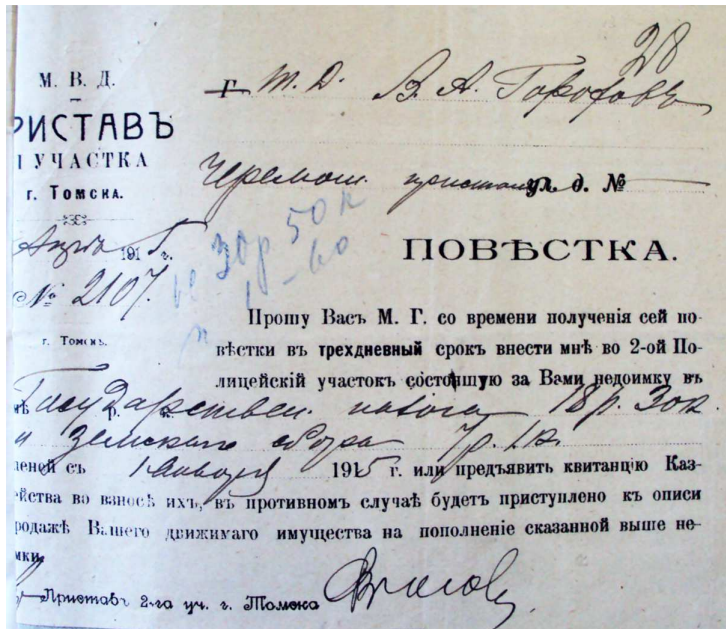 28
М. В. Д.
РИСТАВЪ
УЧАСТКА
г. Томска.
191 5 г.
№ 2107.
г. Томскъ.
Г Т. Д. В. А. Гороховъ
Черемош. пристань ул. д. №
30р 50к
ПОВѢСТКА.
Прошу Васъ М. Г. со времени полученія сей по-
вѣстки въ трехдневный срокъ внести мнѣ во 2-ой По-
лицейскій участокъ состоящую за Вами недоимку въ
мѣ Государствен. налога 18р. 30к.
и Земскаго сбора 7р. 1к.
пеней съ 1 Января 1915 г. или предъявить квитанцію Каз-
ейства во взносѣ ихъ, въ противномъ случаѣ будетъ приступлено къ описи
родажѣ Вашего движимаго имущества на пополненіе сказанной выше не-
мки
Приставъ 2-га уч. г. Томска